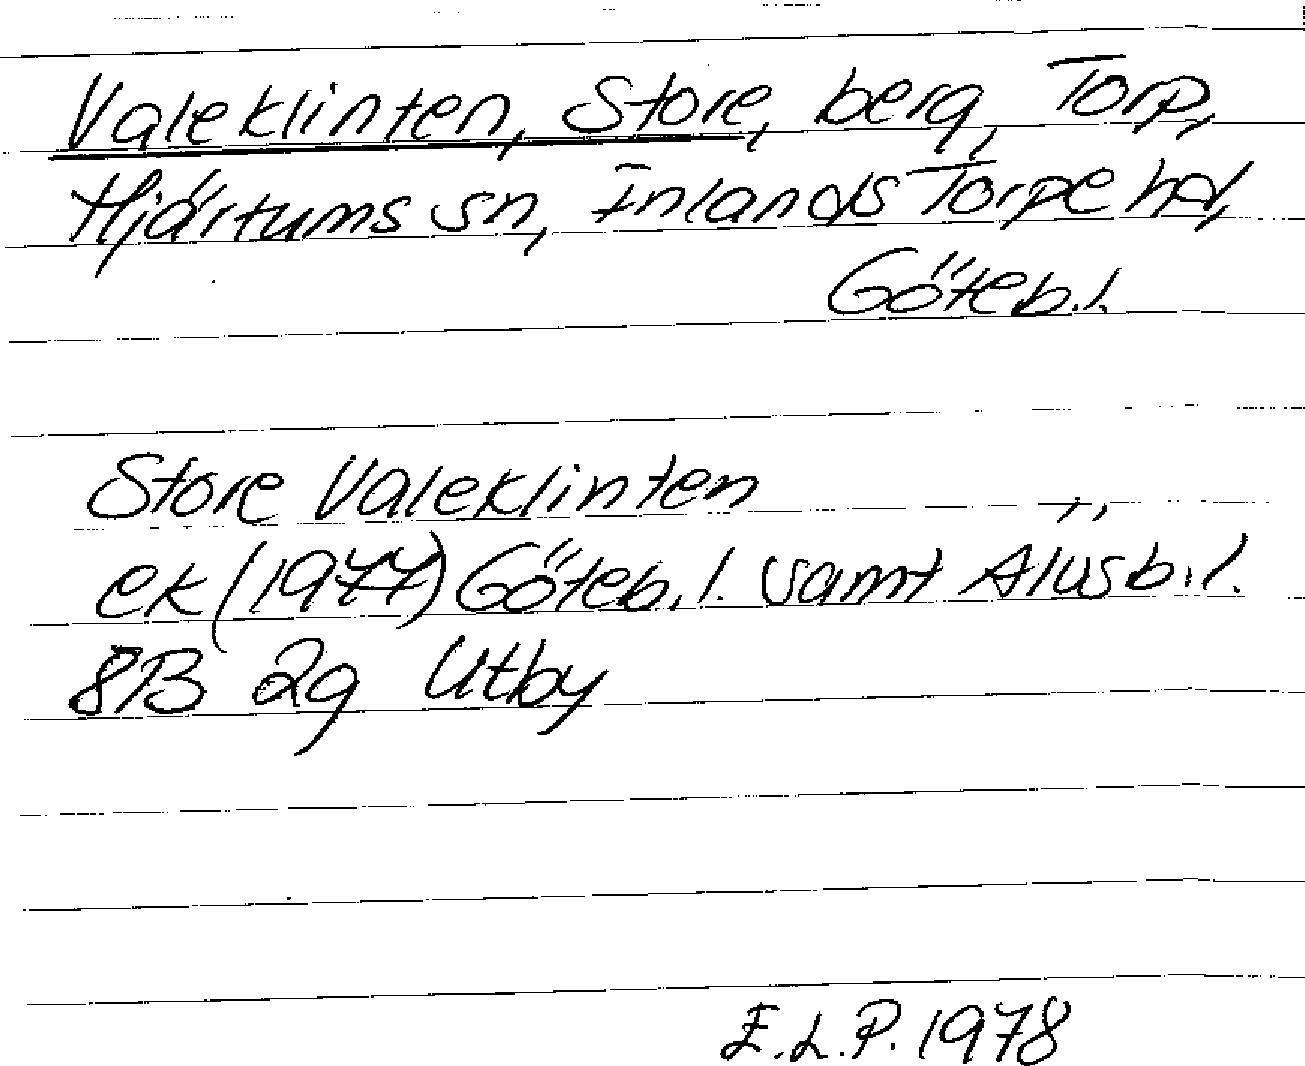 Valeklinten, Store, berg, Torp,
Hjärtums sn, Inlands Torpe hd,
Göteb.l.
Store Valeklinten
ek (1977) Göteb.l. samt Älvsb.l.
8B 2g Utby
E.L.P. 1978